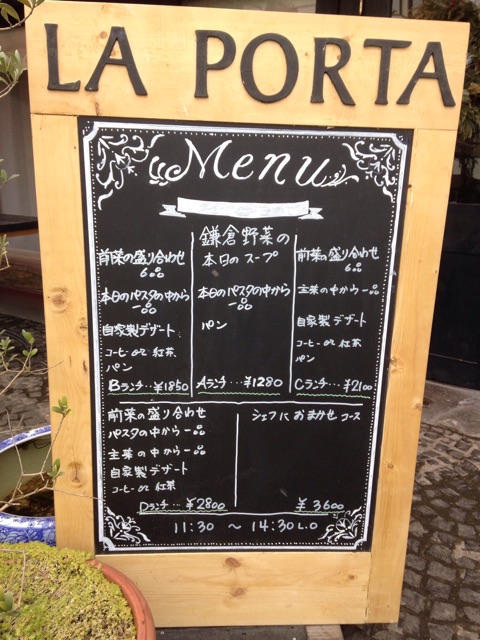 LA PORTA
Menu
前菜の盛り合わせ
6品
本日のパスタの中から
一品
自家製デザート
コーヒー or 紅茶
パン
Bランチ…¥1850
鎌倉野菜の
本日のスープ
本日のパスタの中から
一品
パン
Aランチ…¥1280
前菜の盛り合わせ
6品
主菜の中から一品
自家製デザート
コーヒー or 紅茶
パン
Cランチ…¥2100
前菜の盛り合わせ
パスタの中から一品
主菜の中から一品
自家製デザート
コーヒー or 紅茶
Dランチ…¥2800
シェフにおまかせコース
¥3600
11:30 〜 14:30 L.O